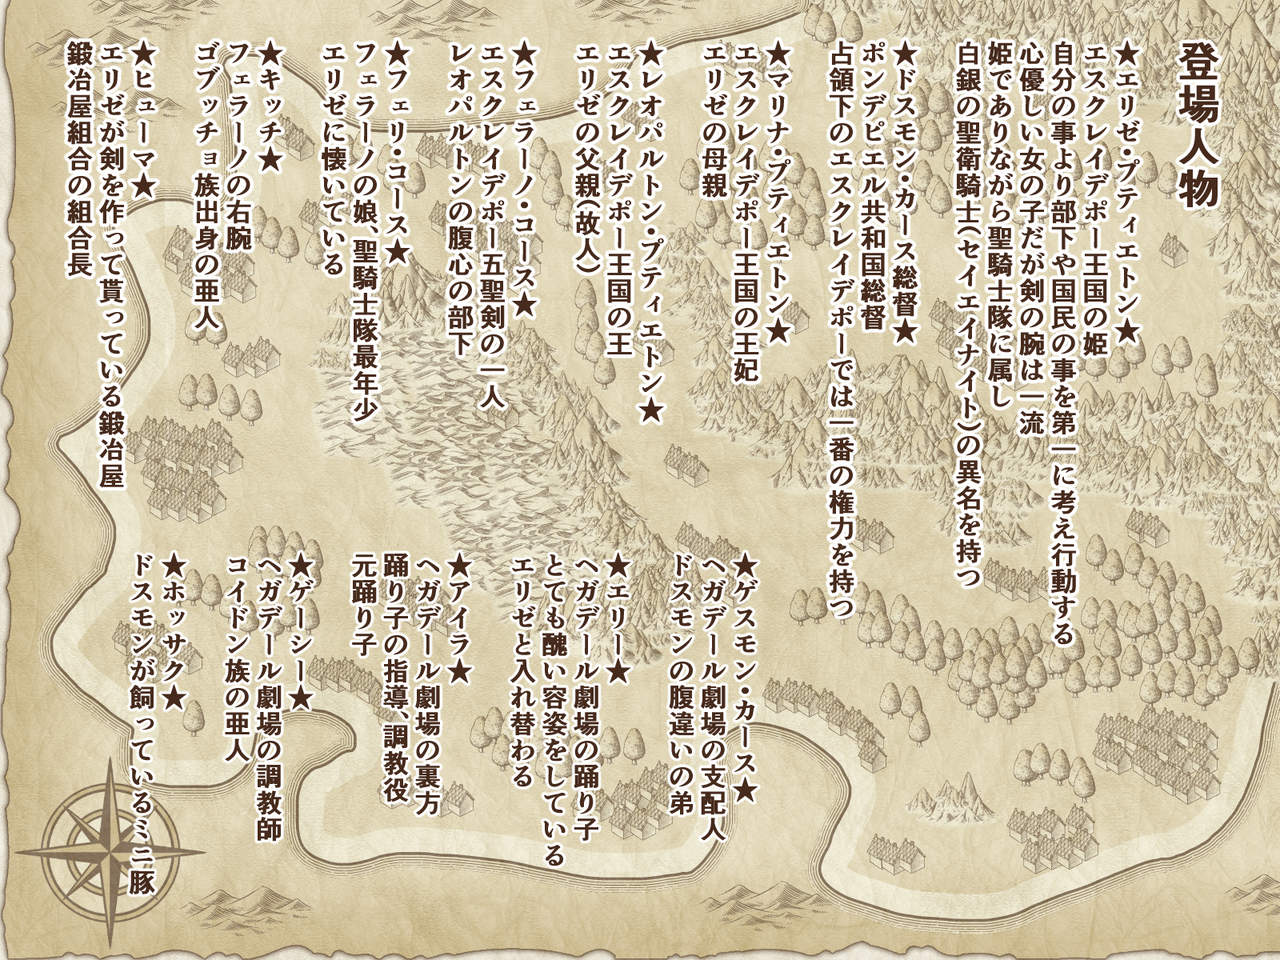 登場人物
★エリゼ・プティエトン★
エスクレイデポー王国の姫
自分の事より部下や国民の事を第一に考え行動する
心優しい女の子だが剣の腕は一流
姫でありながら聖騎士隊に属し
白銀の聖衛騎士(セイエイナイト)の異名を持つ
★ドスモン・カース総督★
ポンデピエル共和国総督
占領下のエスクレイデポーでは一番の権力を持つ
★マリナ・プティエトン★
エスクレイデポー王国の王妃
エリゼの母親
★レオパルトン・プティエトン★
エスクレイデポー王国の王
エリゼの父親(故人)
★フェラーノ・コース★
エスクレイデポー五聖剣の一人
レオパルトンの腹心の部下
★フェリ・コース★
フェラーノの娘、聖騎士隊最年少
エリゼに懐いている
★キッチ★
フェラーノの右腕
ゴブッチョ族出身の亜人
★ヒューマ★
エリゼが剣を作って貰っている鍛冶屋
鍛冶屋組合の組合長
★ゲスモン・カース★
ヘガデール劇場の支配人
ドスモンの腹違いの弟
★エリー★
ヘガデール劇場の踊り子
とても醜い容姿をしている
エリゼと入れ替わる
★アイラ★
ヘガデール劇場の裏方
踊り子の指導、調教役
元踊り子
★ゲーシー★
ヘガデール劇場の調教師
コイドン族の亜人
★ホッサク★
ドスモンが飼っているミニ豚